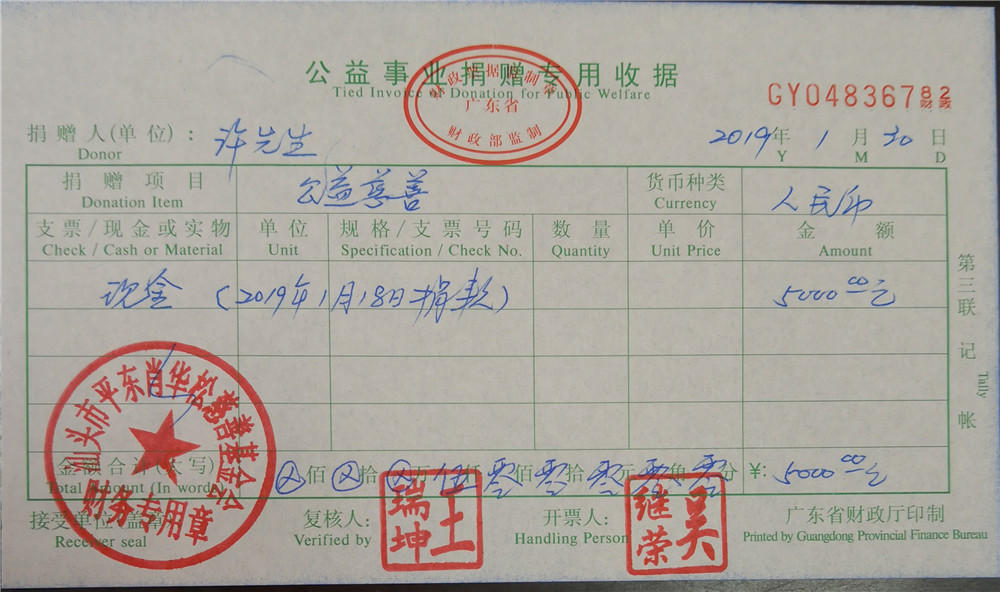 公益事业捐赠专用收据
Tied Invoice of Donation for Public Welfare
财政票据监制章
广东省
财政部监制
GY04836782
财政
捐赠人(单位): 许先生
Donor
2019年 1月 30日
Y M D
捐赠项目 公益慈善 货币种类 人民币
Donation Item Currency
支票/现金或实物 单位 规格/支票号码 数量 单价 金额
Check / Cash or Material Unit Specification / Check No. Quantity Unit Price Amount
现金 (2019年1月18日捐款) 5000.00元
第三联 记帐
Tally
汕头市平东肖华松慈善基金会
财务专用章
金额合计(大写) ⊗佰⊗拾⊗万伍仟零佰零拾零元零角零分 ¥: 5000.00元
Total Amount (In words)
接受单位(盖章) 复核人: 开票人: 广东省财政厅印制
Receiver seal Verified by Handling Person Printed by Guangdong Provincial Finance Bureau
王瑞坤
吴继荣